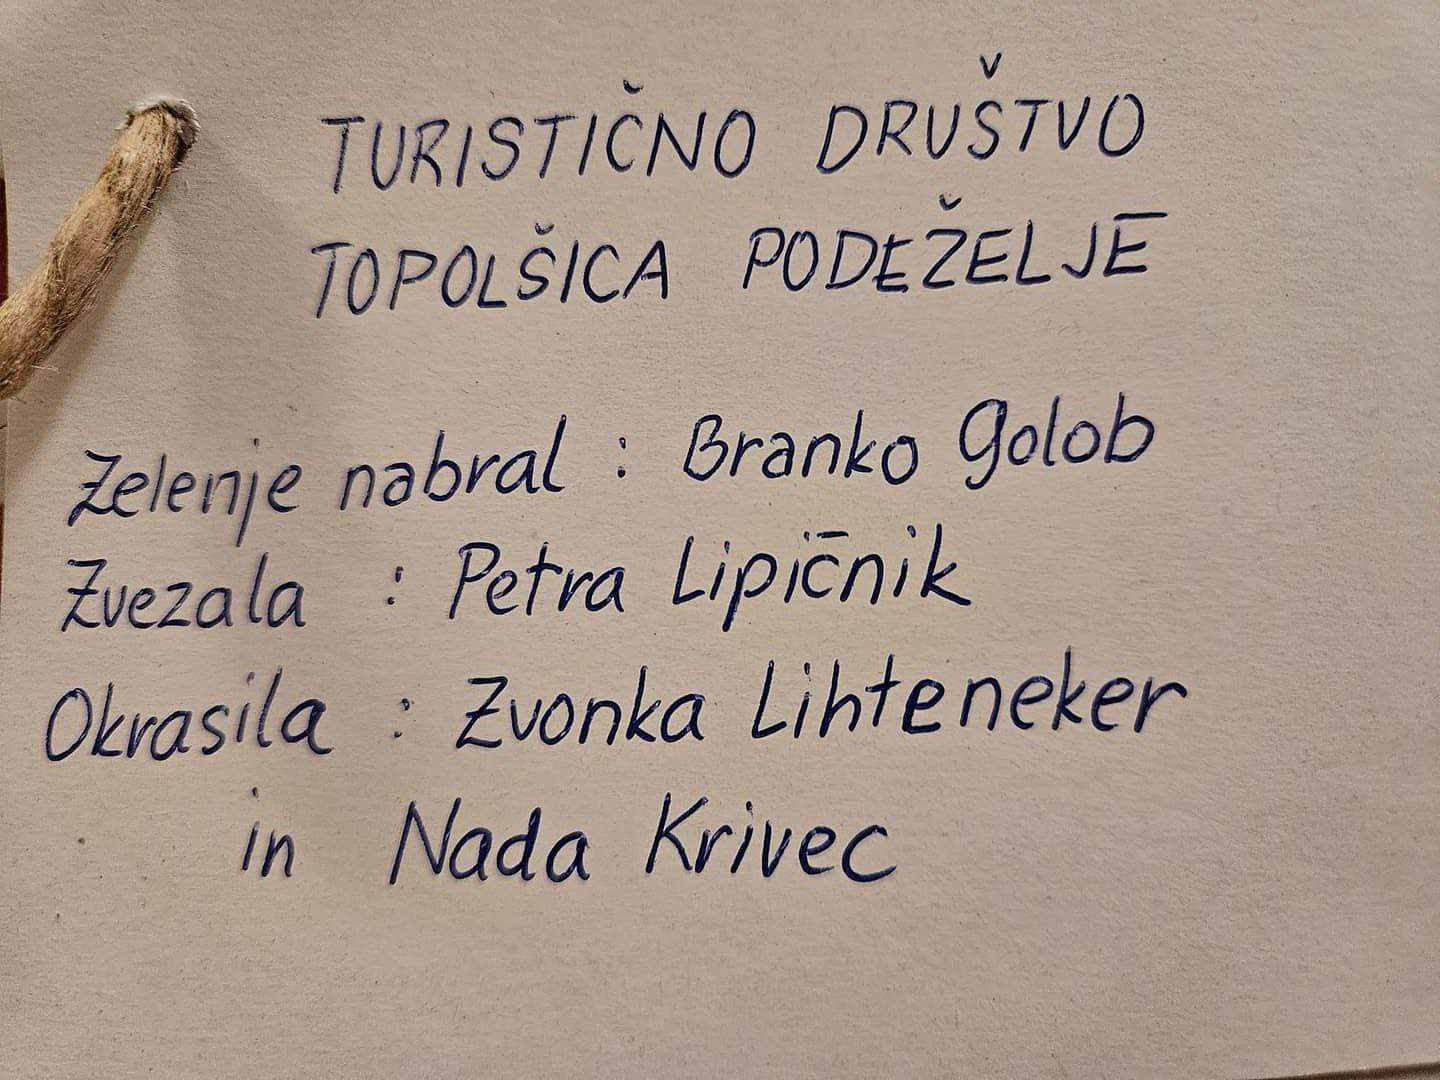 TURISTIČNO DRUŠTVO
TOPOLŠICA PODEŽELJE
Zelenje nabral : Branko Golob
Zvezala : Petra Lipičnik
Okrasila : Zvonka Lihteneker
in Nada Krivec